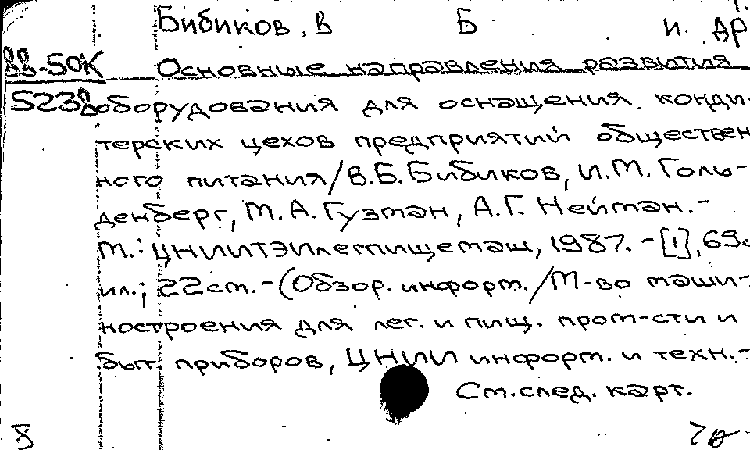 Бибиков, В Б и. др
88-50К Основные направления развития
5238 оборудования для оснащения конди-
терских цехов предприятий обществен
ного питания/В.Б.Бибиков, И.М. Голь-
денберг, М.А. Гузман, А.Г. Нейман.-
М.: ЦНИИТЭИлегпищемаш, 1987. -[1], 69с
ил.; 22см.-(Обзор. информ./М-во маши-
ностроения для лег. и пищ. пром-сти и
быт. приборов, ЦНИИ информ. и техн.-
См.след. карт.